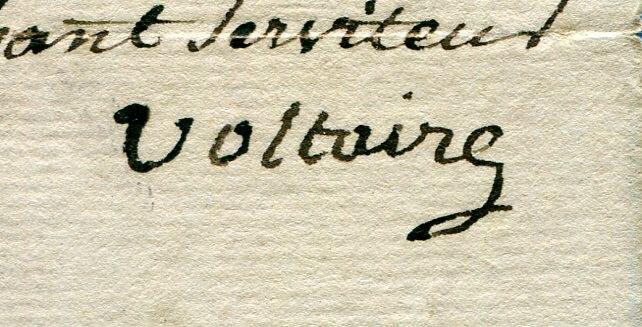 ant Serviteur
Voltaire